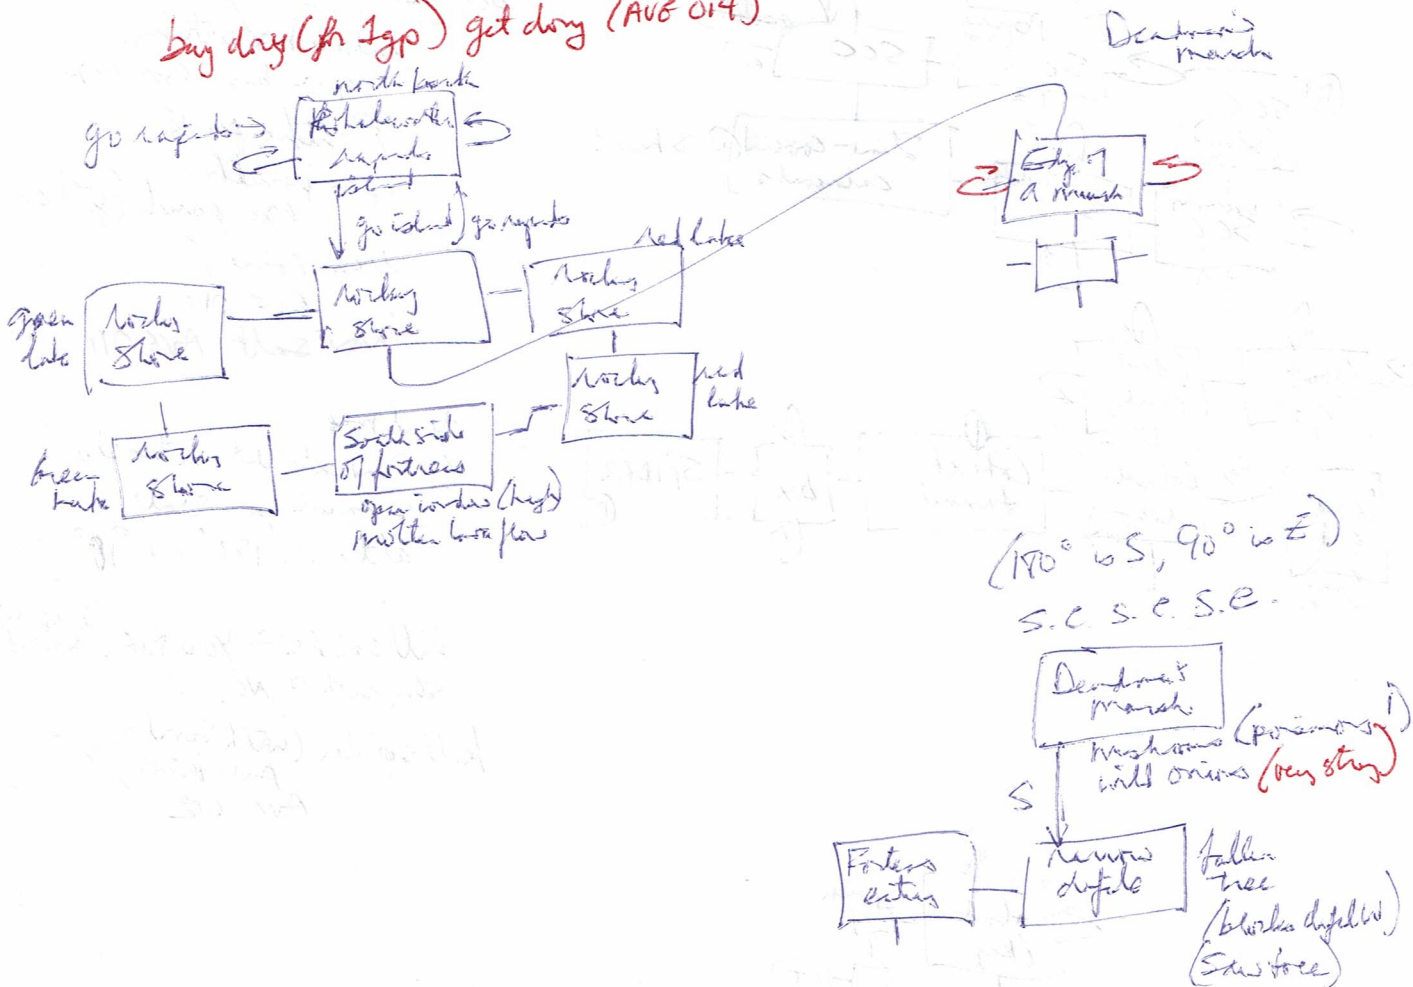 buy dory (for 1gp) get dory (AVE 014)
Deadman's
marsh
north bank
go rapids
rapids
island
go island
go rapids
Edge of
a marsh
red lake
green
lake
rocky
shore
rocky
shore
rocky
shore
rocky
shore
red
lake
green
lake
rocky
shore
South side
of fortress
open window (high)
molten lava flow
(180° is S, 90° is E)
s. e. s. e. s. e.
Deadman's
marsh
mushrooms (poisonous!)
wild onions (very strong)
S
Fortress
entry
narrow
defile
fallen
tree
(blocks defile W)
(saw tree)